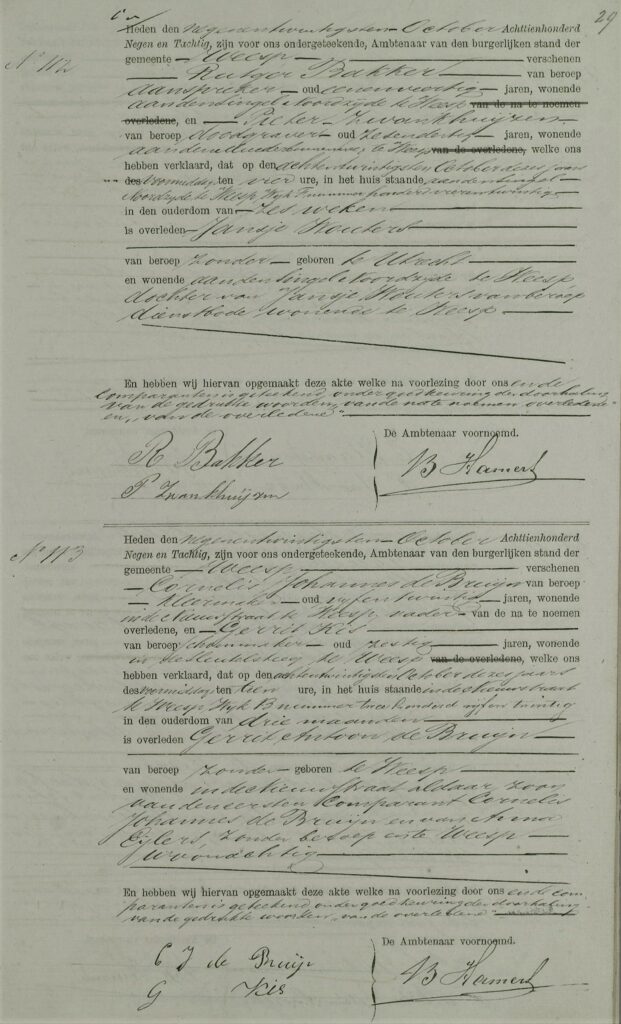 29
Heden den negenentwintigsten October Achttienhonderd
Negen en Tachtig, zijn voor ons ondergeteekende, Ambtenaar van den burgerlijken stand der
N° 112
gemeente Weesp verschenen
Rutger Bakker van beroep
aanspreker oud eenenveertig jaren, wonende
aanden Singel Noordzijde te Weesp van de na te noemen
overledene, en Pieter Zwankhuijzen
van beroep doodgraver oud zesendertig jaren, wonende
te Weesp van de overledene, welke ons
hebben verklaard, dat op den achtentwintigsten October dezes jaars
des voormiddags ten vier ure, in het huis staande aanden Singel
Noordzijde te Weesp Wijk F nummer honderd vierentwintig
in den ouderdom van zes weken
is overleden Jansje Wouters
van beroep zonder geboren te Utrecht
en wonende aanden Singel Noordzijde te Weesp
dochter van Jansje Wouters van beroep
dienstbode wonende te Weesp
En hebben wij hiervan opgemaakt deze akte welke na voorlezing door ons en de
comparanten is geteekend, onder goedkeuring der doorhaling
van de gedrukte woorden, van de na te noemen overledene
en, van de overledene"
De Ambtenaar voornoemd.
R Bakker
B Hamers
P Zwankhuijzen
Heden den negenentwintigsten October Achttienhonderd
N° 113
Negen en Tachtig, zijn voor ons ondergeteekende, Ambtenaar van den burgerlijken stand der
gemeente Weesp verschenen
Cornelis Johannes de Bruijn van beroep
kleermaker oud vijfentwintig jaren, wonende
in de Nieuwstraat te Weesp, vader van de na te noemen
overledene, en Gerrit Kis
van beroep schoenmaker oud zestig jaren, wonende
in de Sleutelsteeg te Weesp van de overledene, welke ons
hebben verklaard, dat op den achtentwintigsten October dezes jaars
des voormiddags ten tien ure, in het huis staande in de Nieuwstraat
te Weesp Wijk B nummer twee honderd vijfentwintig
in den ouderdom van drie maanden
is overleden Gerrit Antoon de Bruijn
van beroep zonder geboren te Weesp
en wonende in de Nieuwstraat aldaar, zoon
van den eersten Comparant Cornelis
Johannes de Bruijn en van Anna
Eijlers, zonder beroep en te Weesp
woonachtig
En hebben wij hiervan opgemaakt deze akte welke na voorlezing door ons en de com-
paranten is geteekend, onder goedkeuring der doorhaling
van de gedrukte woorden, van de overledene"
De Ambtenaar voornoemd.
C J de Bruijn
B Hamers
G Kis